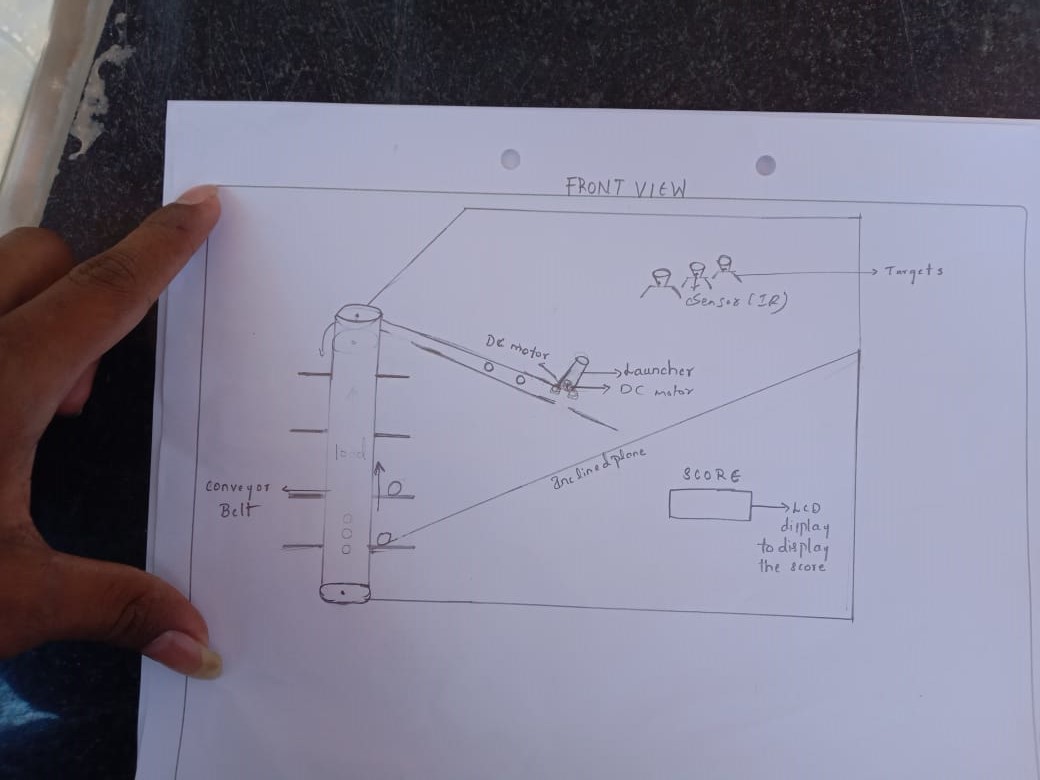 FRONT VIEW
Targets
Sensor (IR)
DC motor
Launcher
DC motor
load
Inclined plane
Conveyor
Belt
SCORE
LCD
display
to display
the score